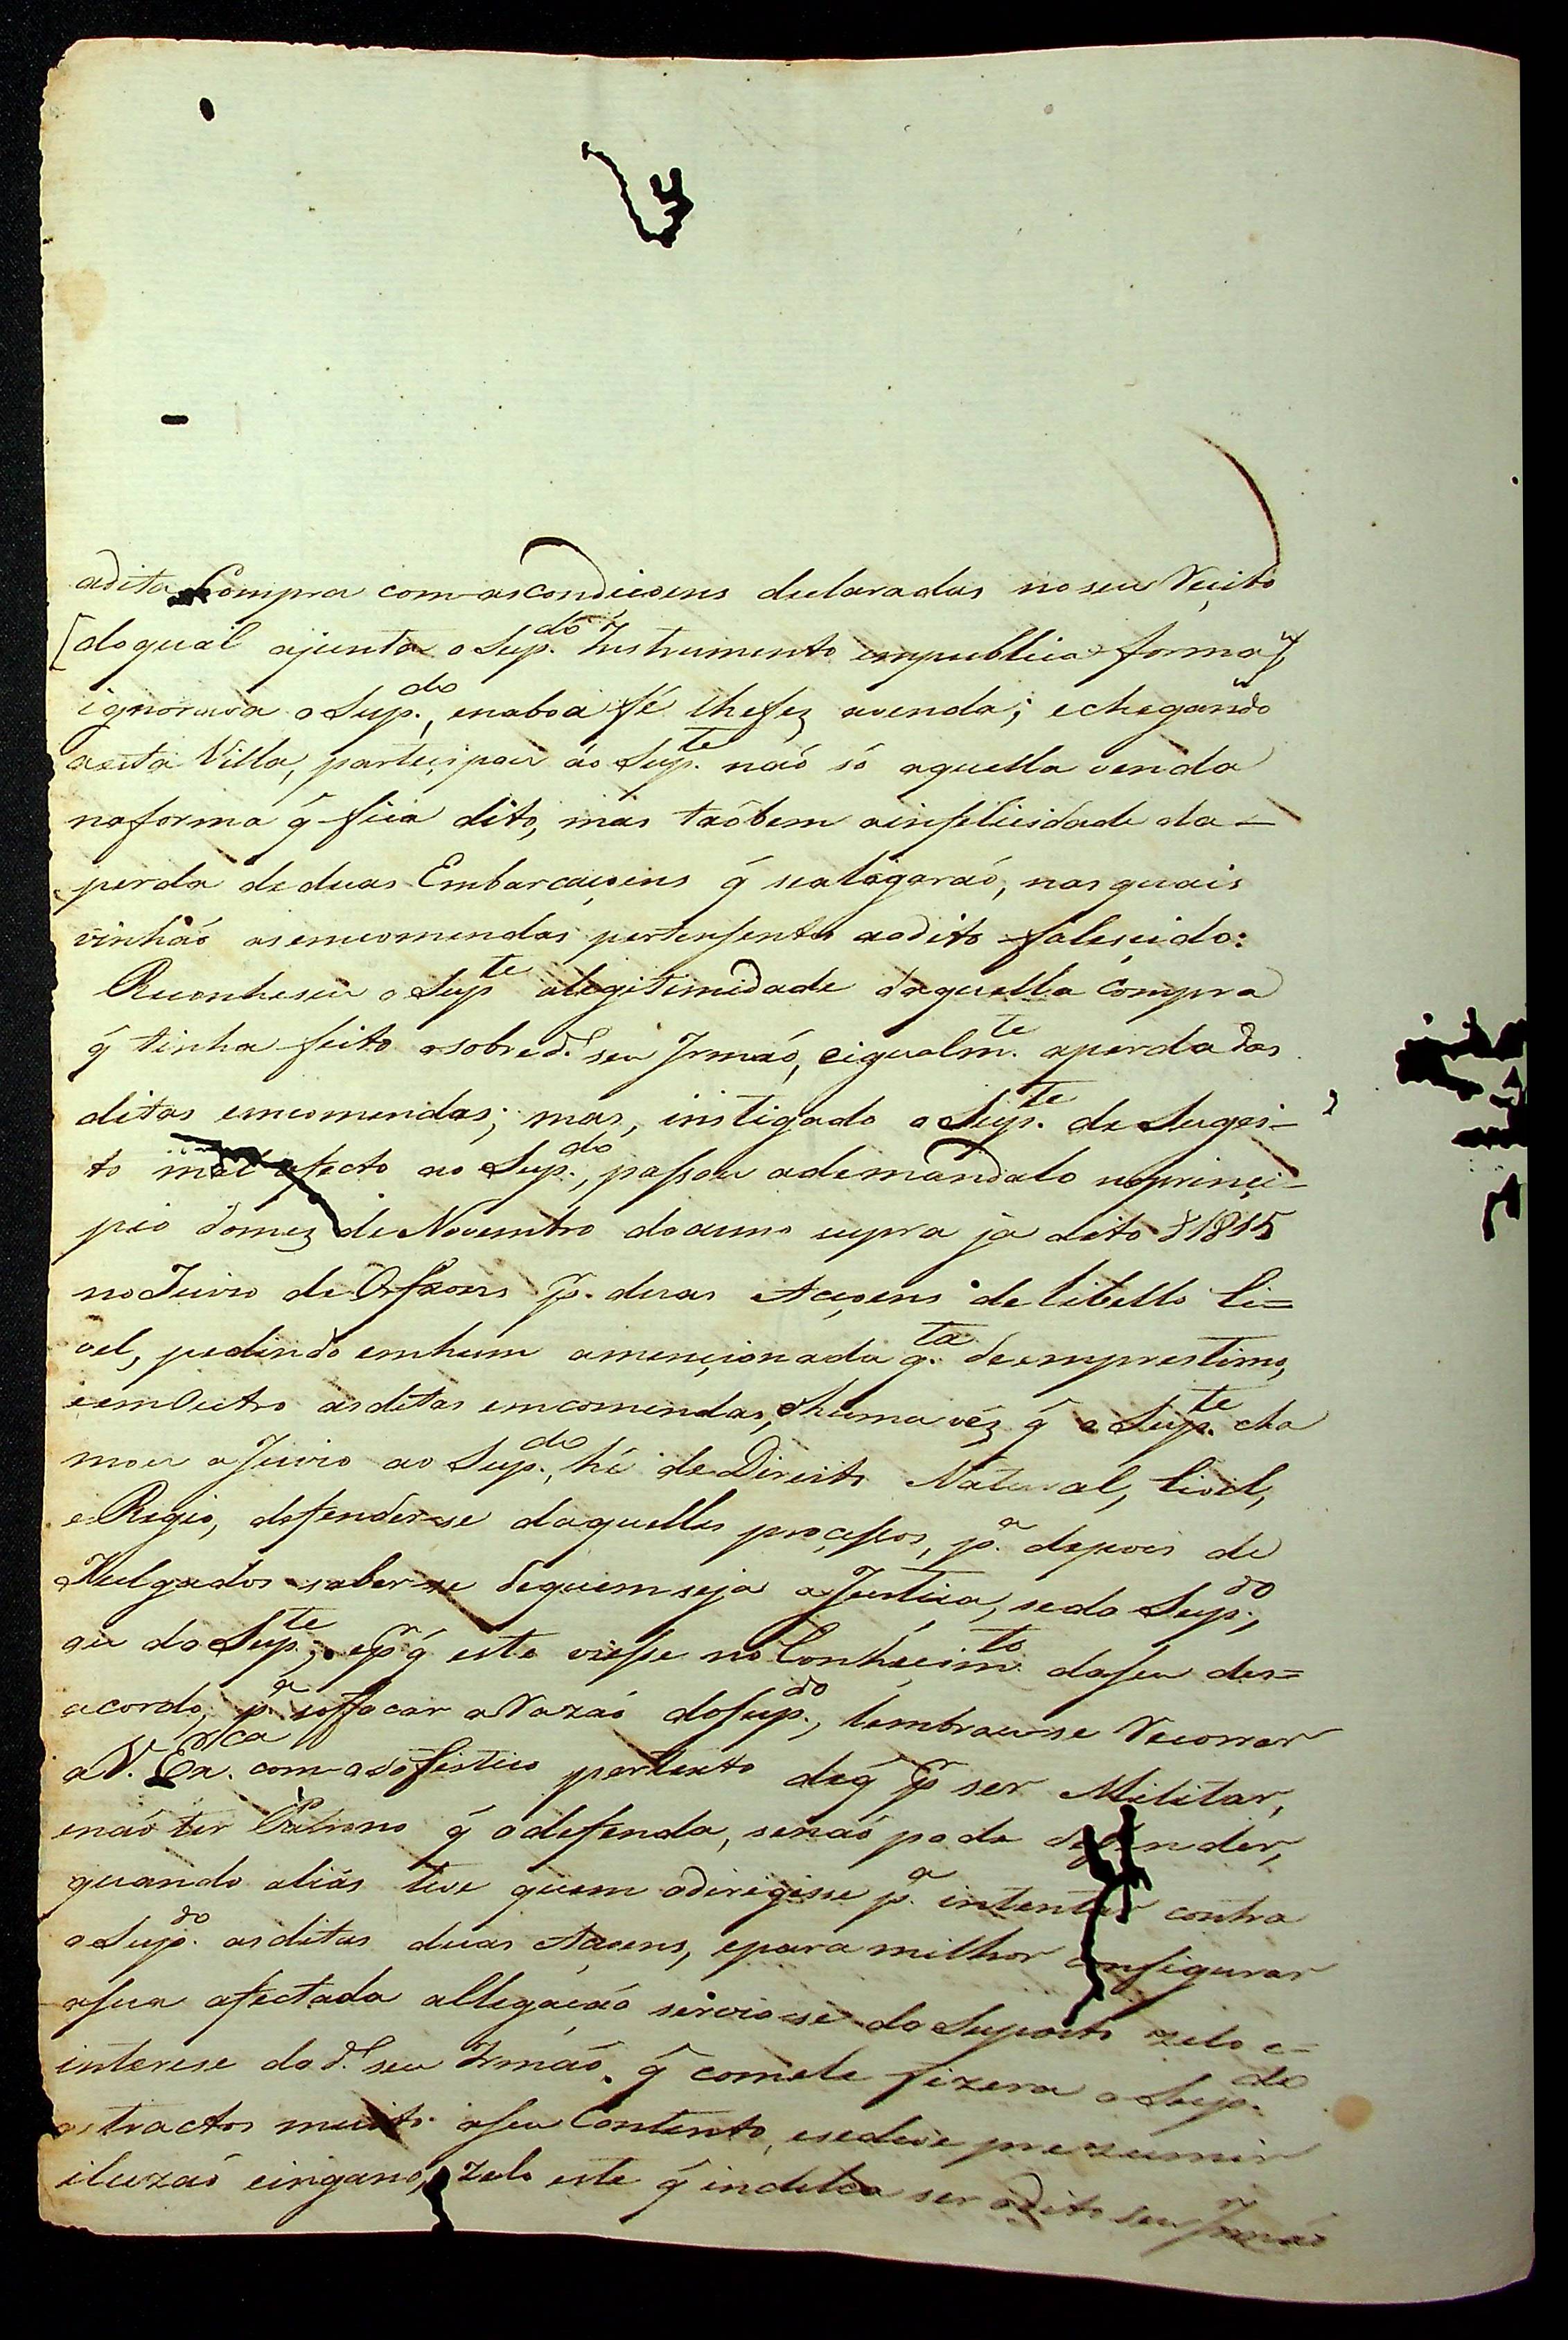 adita Compra com as condiçoens declaradas no seu Reçito
[do qual ajunta o Sup.do Instrumento empublica forma],
ignorava o Sup.do, enaboa fé lhefez avenda; echegando
aesta Villa, partiçipou áo Sup.te naó só aquella venda
naforma q̃ fica dito, mas taõbem ainfeliçidade da
perda de duas Embarcaçoens q̃ sealagaraó, nas quais
vinhaó asemcomendas pertensentes aodito falesçido:
Reconheseu o Sup.te alegitimidade daquella Compra
q̃ tinha feito osobred.º seu Irmaó, eigualm.te aperda das
ditas emcomendas; mas, instigado o Sup.te de Sugei-
to mal afecto ao Sup.do, pasou ademandalo noprinçi-
pio domez de Novembro doanno supra ja dito d 1815
no Juizo de Orfaons p.r duas Açoens de libello Ci=
vel, pedindo emhum amençionada q.ta de emprestimo,
eemOutro asditas emcomendas, Ehuma véz q̃ o Sup.te cha
mou a Juizo ao Sup.do, hé de Direito Natural, Civel,
e Regio, defender-se daquelles proçessos, p.a depois de
Julgados saber-se dequem seja a Justiça, se do Sup.do,
ou do Sup.te; ep.r q̃ este viesse no Conheçim.to daseu des=
acordo, p.a soffocar a Razaó do Sup.do, lembrou-se Recorrer
a V. Ex.ca com osofistico pertexto deq̃ p.r ser Militar,
enaó ter Patrono q̃ odefenda, senaó pode defender,
quando aliás teve quem odirigisse p.a intentar contra
o Sup.do asditas duas Açoens, epara milhor configurar
asua afectada allegaçaó servio-se do Suposto zelo e-
interese do d.º seu Irmaó, q̃ comele fizera o Sup.do
os tractos muito aseu Contento, esedeve prezumir
iluzaó eingano, zelo este q̃ indica ser odito seu Irmaó